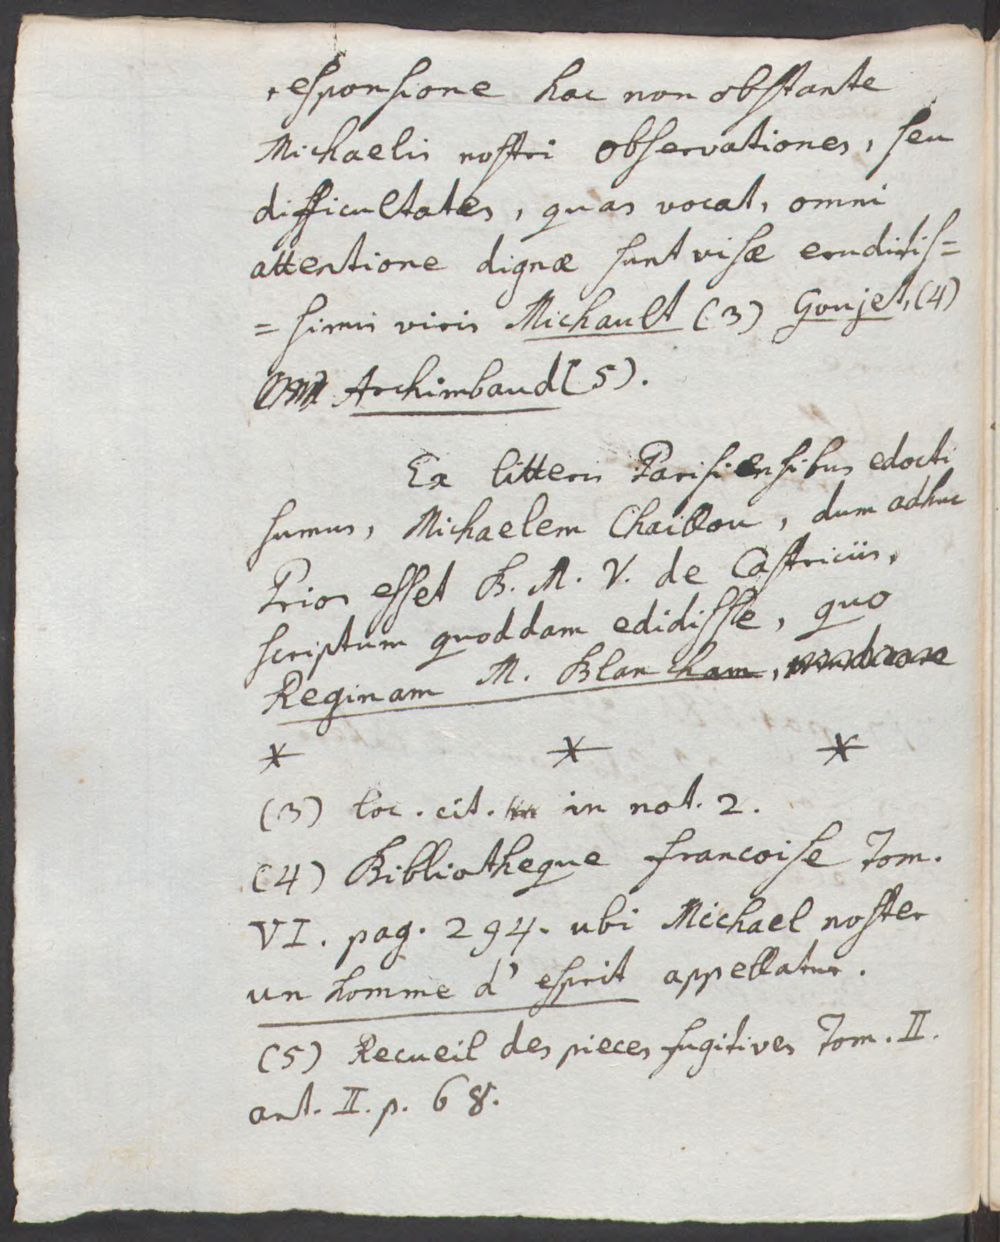 responsione hac non obstante
Michaelis nostri observationes, seu
difficultates, quas vocat, omni
attentione dignæ sunt visæ eruditis=
=simis viris Michault (3) Goujet, (4)
Archimbaud (5).
Ex litteris Parisiensibus edocti
sumus, Michaelem Chaillou, dum adhuc
Prior esset B. M. V. de Castriciis,
scriptum quoddam edidisse, quo
Reginam M. Blancham,
* * *
(3) loc. cit. in not. 2.
(4) Bibliotheque francoise Tom.
VI. pag. 294. ubi Michael noster
un homme d' esprit appellatur.
(5) Recueil des pieces fugitives Tom. II.
art. II. p. 68.